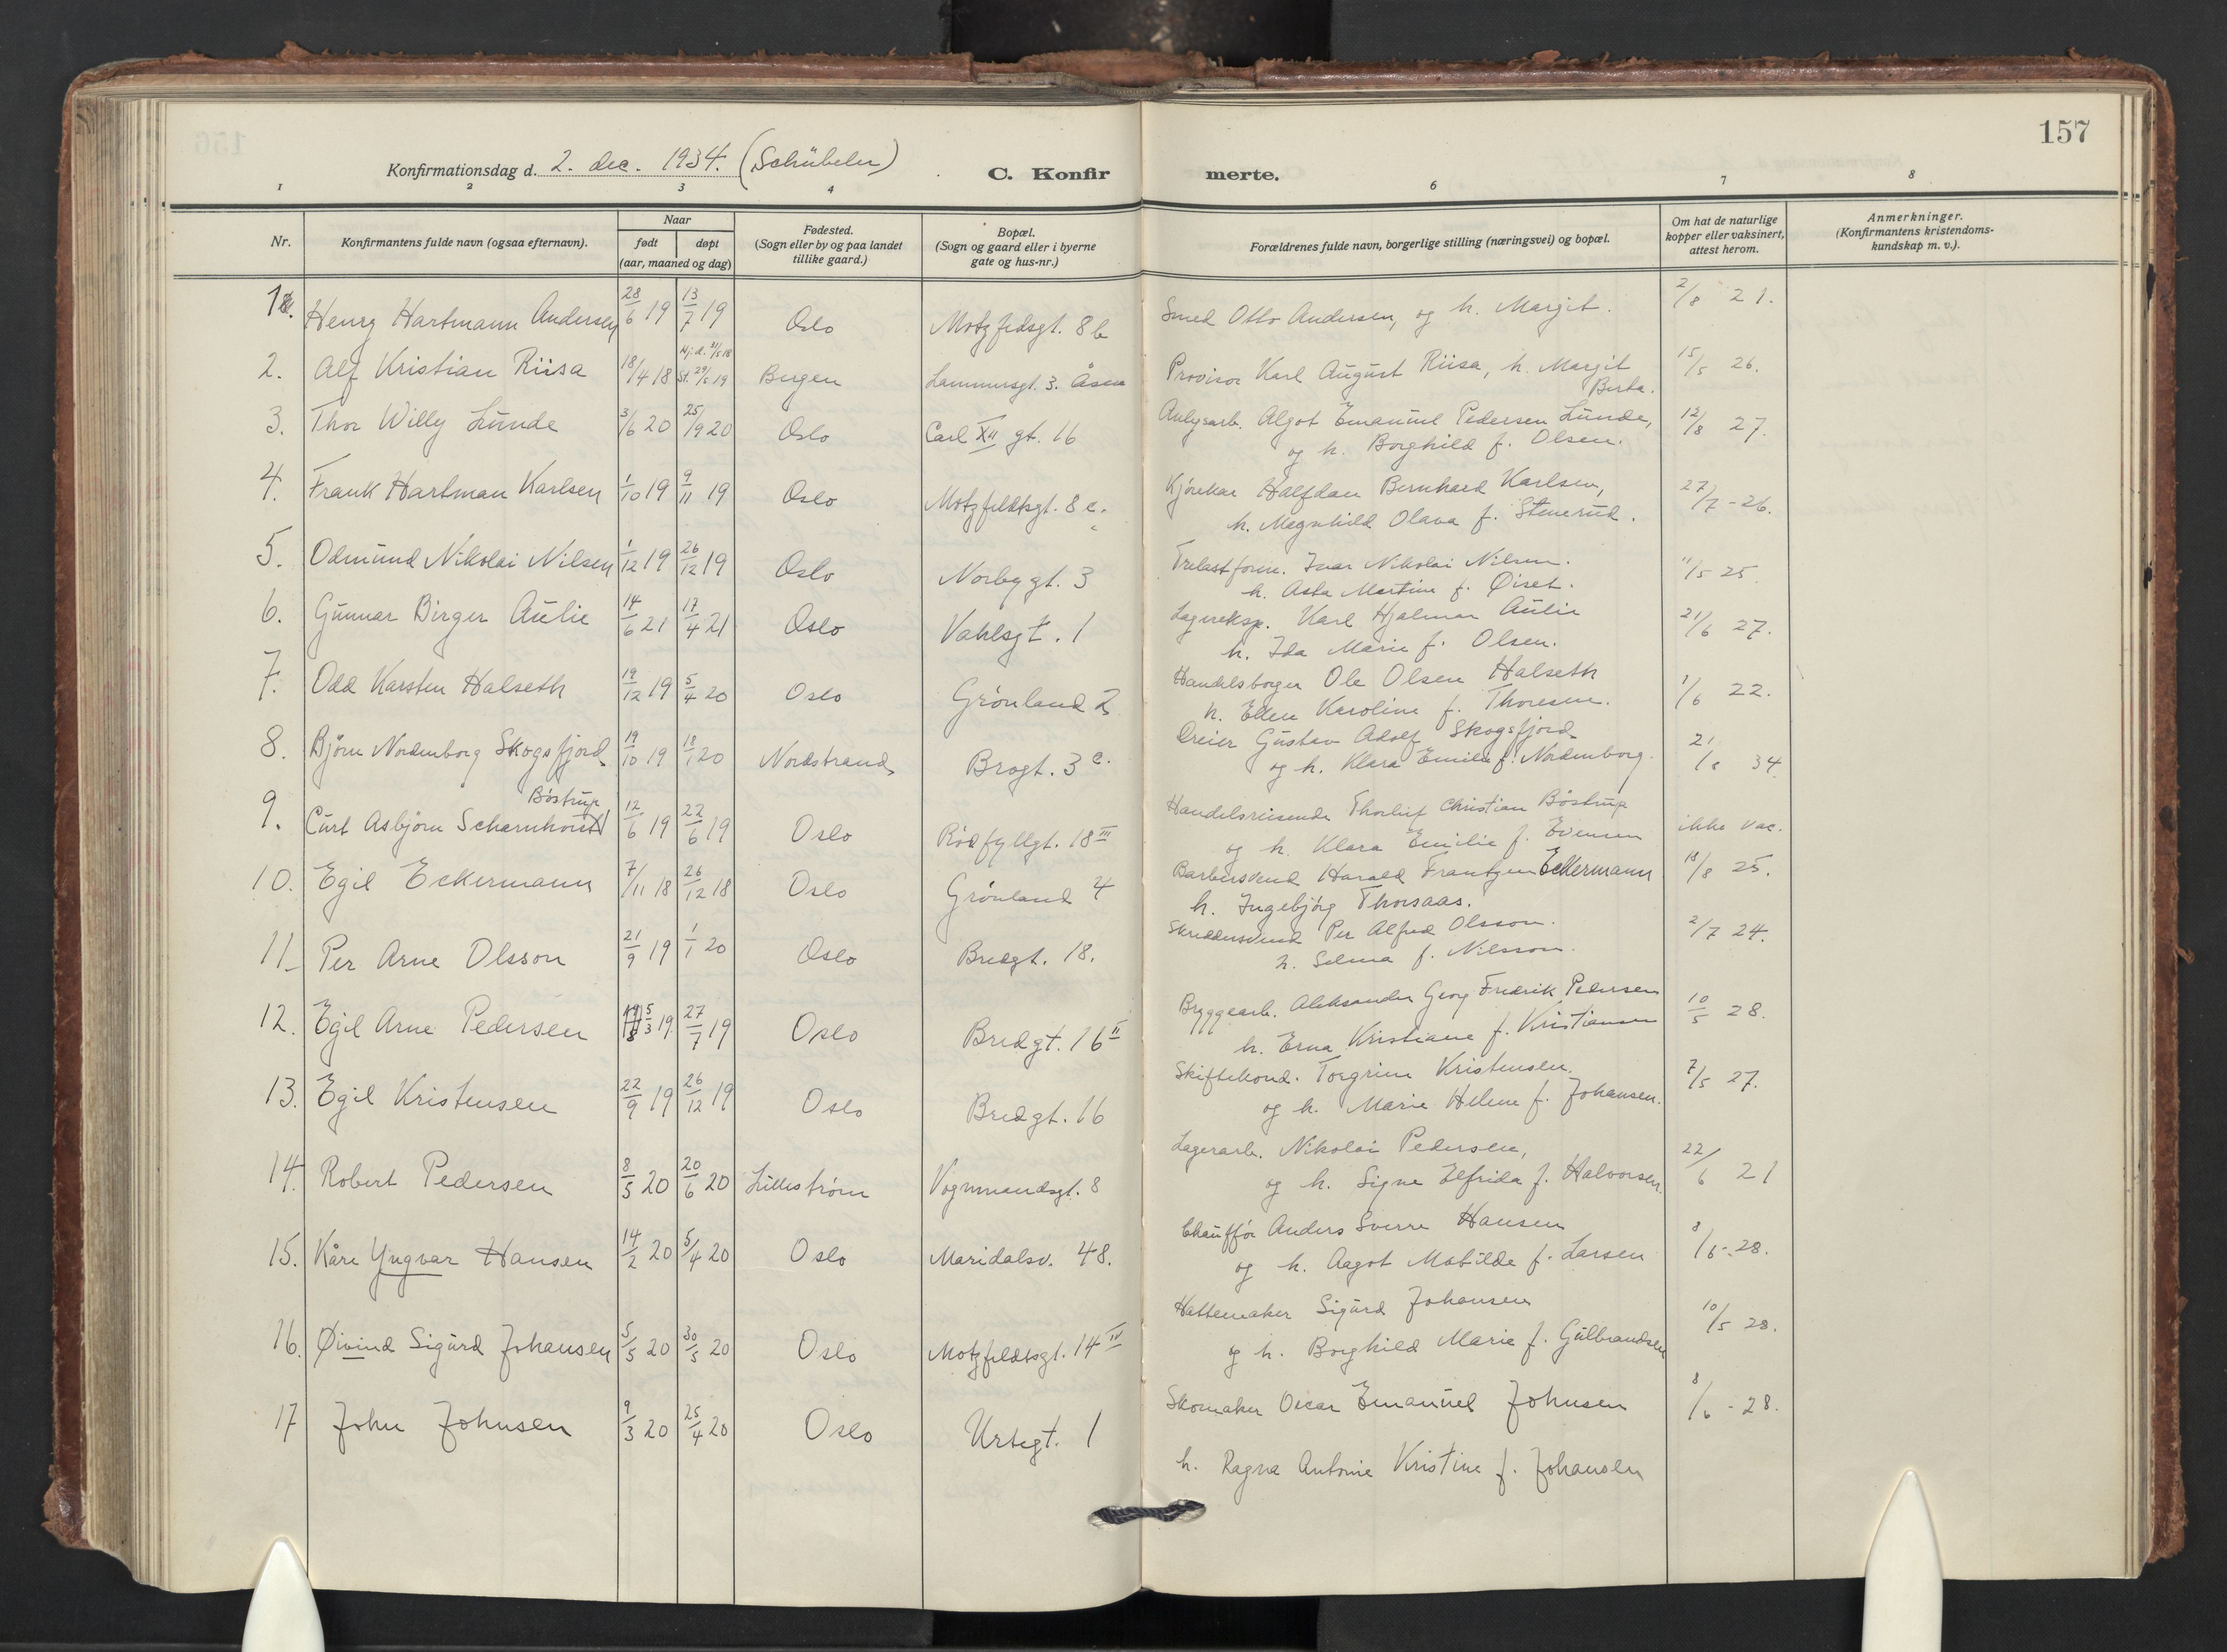 157
Konfirmationsdag d. 2. dec. 1934. (Schübeler)
C. Konfirmerte.
1 2 3 4 6 7 8
Nr.
Konfirmantens fulde navn (ogsaa efternavn).
Naar
født døpt
(aar, maaned og dag)
Fødested.
(Sogn eller by og paa landet
tillike gaard.)
Bopæl.
(Sogn og gaard eller i byerne
gate og hus-nr.)
Forældrenes fulde navn, borgerlige stilling (næringsvei) og bopæl.
Om hat de naturlige
kopper eller vaksinert,
attest herom.
Anmerkninger.
(Konfirmantens kristendoms-
kundskap m. v.).
1. Henry Hartmann Andersen 28/6 19 13/7 19 Oslo Motzfedsgt. 8 b Smed Otto Andersen, og h. Margit. 2/8 21.
2. Alf Kristian Riisa 18/4 18 Hj.d. 21/5 18 St. 29/5 19 Bergen Lammersgt. 3. Provisor Karl August Riisa, h. Margit 15/5 26.
Berta.
3. Thor Willy Lunde 3/6 20 25/9 20 Oslo Carl XII gt. 16 Anlegsarb. Algot Emanuel Pedersen Lunde, 12/8 27.
og h. Borghild f. Olsen.
4. Frank Hartman Karlsen 1/10 19 9/11 19 Oslo Motzfeldtsgt. 8 c. Kjørekar Halfdan Bernhard Karlsen, 27/7 - 26.
h. Magnhild Olava f. Stenerud.
5. Odmund Nikolai Nilsen 1/12 19 26/12 19 Oslo Norbygt. 3 Trelastform. Ivar Nikolai Nilsen. 11/5 25.
h. Asta Martine f. Øiset.
6. Gunnar Birger Aulie 14/6 21 17/4 21 Oslo Vahlsgt. 1 Lagereksp. Karl Hjalmar Aulie 21/6 27.
h. Ida Marie f. Olsen.
7. Odd Karsten Halseth 19/12 19 5/4 20 Oslo Grønland 2 Handelsborger Ole Olsen Halseth 1/6 22.
h. Ellen Karoline f. Thoresen.
8. Bjørn Nordenborg Skogsfjord 19/10 19 18/1 20 Nordstrand Brogt. 3 c. Dreier Gustav Adolf Skogsfjord 21/8 34
og h. Klara Emilie f. Nordenborg.
9. Curt Asbjørn Scharnhorst Böstrup 12/6 19 22/6 19 Oslo Rødfyllgt. 18 III Handelsreisende Thorleif Christian Böstrup ikke vac.
og h. Klara Emilie f. Evensen
10. Egil Eckermann 7/11 18 26/12 18 Oslo Grønland 4 Barbersvend Harald Frantzen Eckermann 18/8 25.
h. Ingebjørg Thorsaas.
11. Per Arne Olsson 21/9 19 1/1 20 Oslo Bredgt. 18. Skreddersvend Per Alfred Olsson. 2/7 24.
h. Selma f. Nilsson.
12. Egil Arne Pedersen 5/3 19 27/7 19 Oslo Bredgt. 16 II Bryggearb. Aleksander Georg Fredrik Pedersen 10/5 28.
h. Erna Kristiane f. Kristiansen
13. Egil Kristensen 22/9 19 26/12 19 Oslo Bredgt. 16 Skiftekond. Torgrim Kristensen. 7/5 27.
og h. Marie Helene f. Johansen.
14. Robert Pedersen 8/5 20 20/6 20 Lillestrøm Vognmandsgt. 8 Lagerarb. Nikolai Pedersen, 22/6 21
og h. Signe Elfrida f. Halvorsen.
15. Kåre Yngvar Hansen 14/2 20 5/4 20 Oslo Maridalsv. 48. Chauffør Anders Sverre Hansen 8/6 - 28.
og h. Aagot Matilde f. Larsen
16. Øivind Sigurd Johansen 5/5 20 30/5 20 Oslo Motzfeldtsgt. 14 IV Hattemaker Sigurd Johansen 10/5 28.
og h. Borghild Marie f. Gulbrandsen
17 John Johnsen 9/3 20 25/4 20 Oslo Urtegt. 1 Skomaker Oscar Emanuel Johnsen 8/6 - 28.
h. Ragna Antonie Kristine f. Johansen